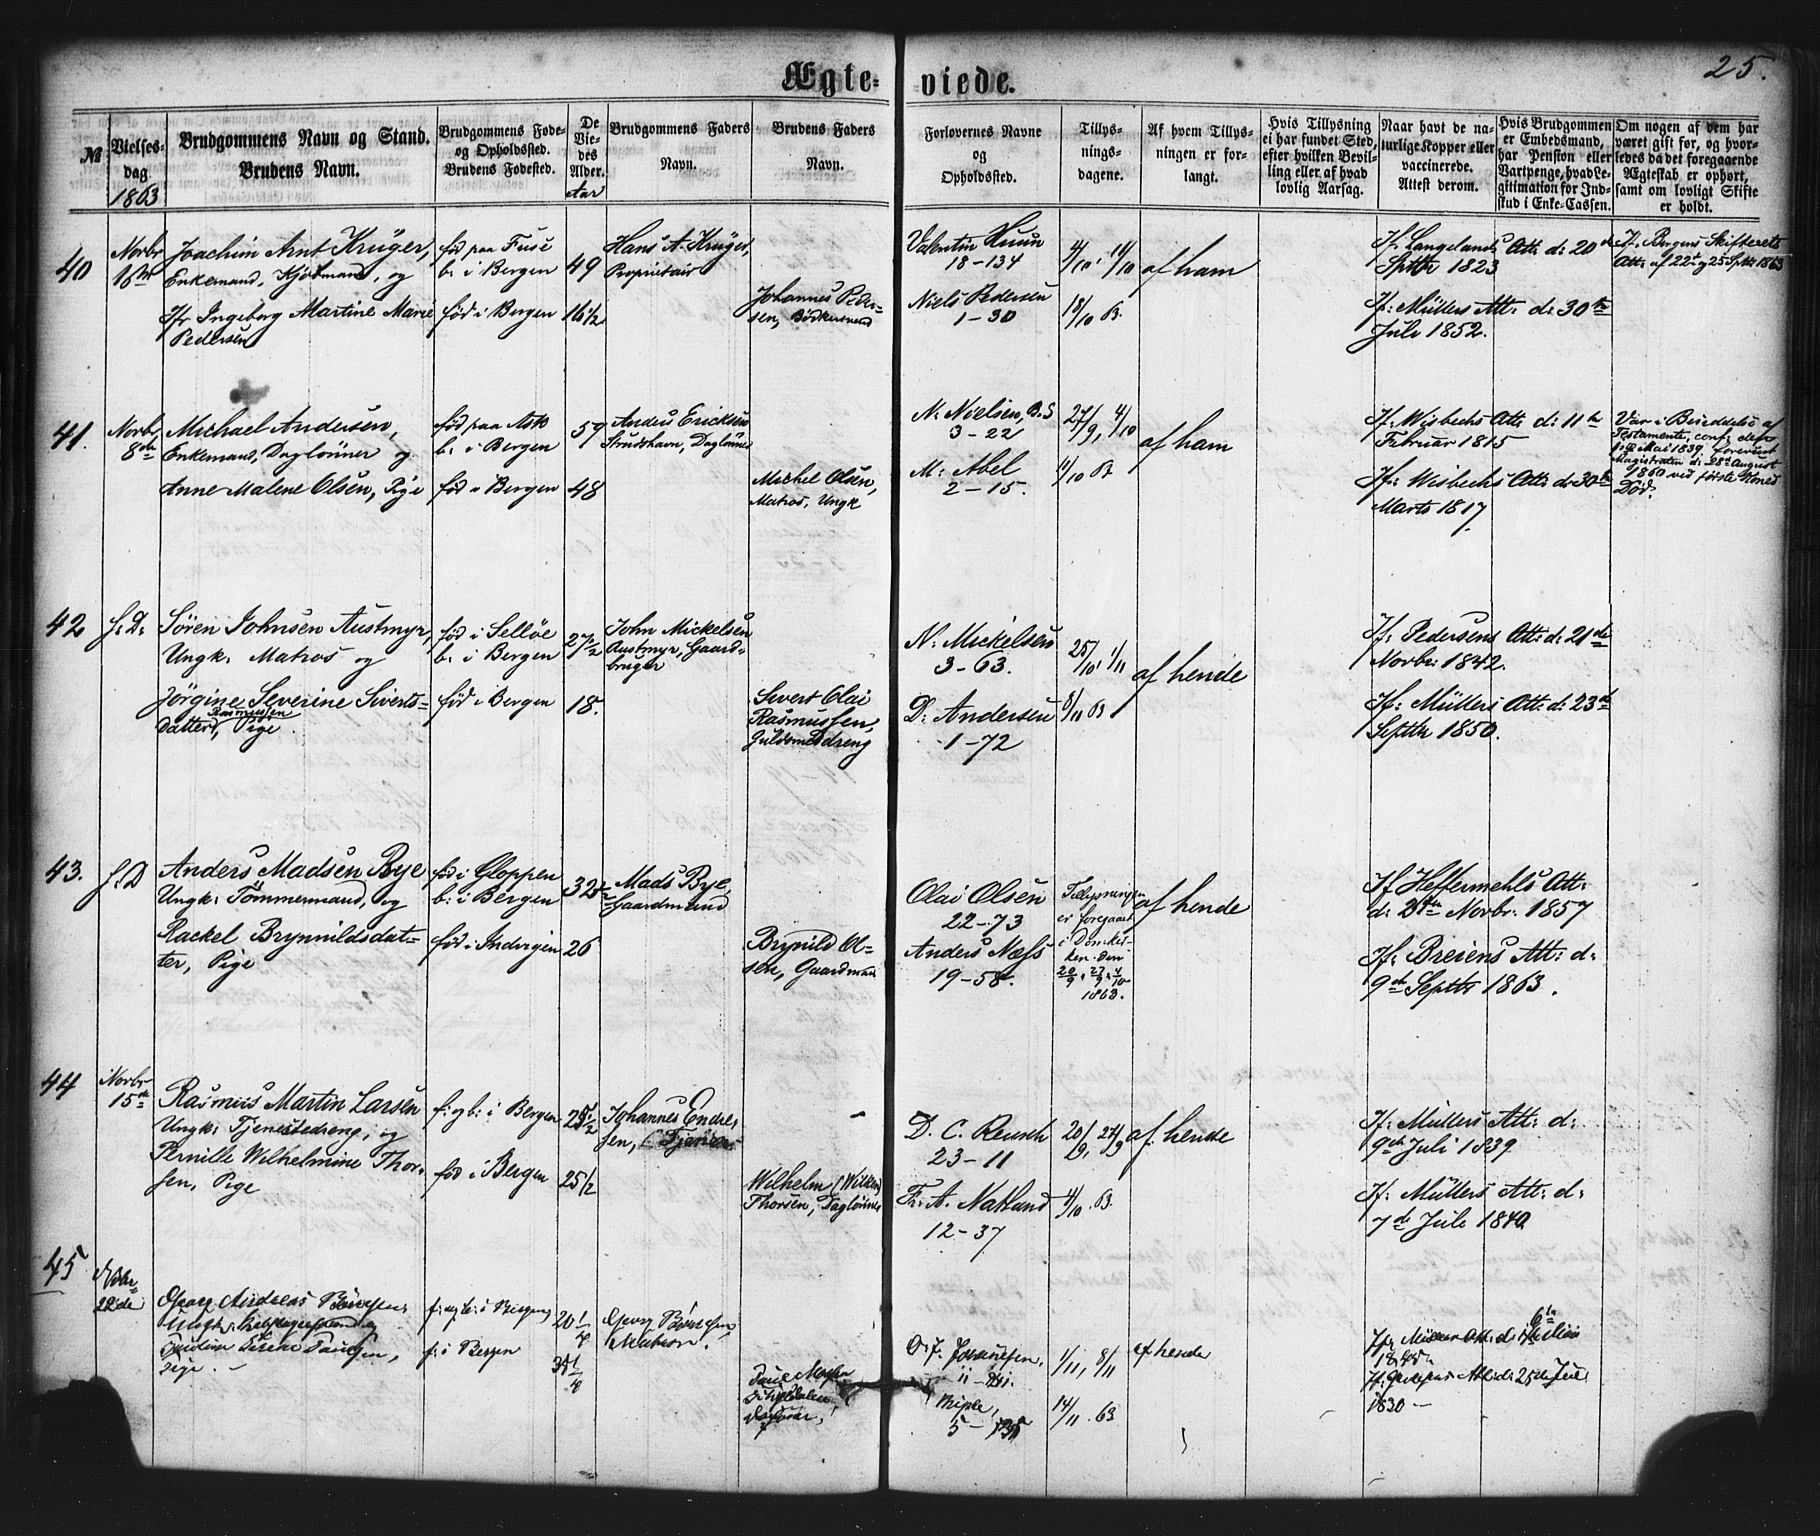 25.
Ægteviede.
№
Vielsesdag 1863
Brudgommens Navn og Stand.
Brudens Navn.
Brudgommens Fødeog Opholdssted.
Brudens Fødested.
De Viedes Alder. Aar
Brudgommens Faders Navn.
Brudens Faders Navn.
Forlovernes Navne og Opholdssted.
Tillysningsdagene.
Af hvem Tillysningen er forlangt.
Hvis Tillysning ei har fundet Sted, efter hvilken Bevilling eller af hvad lovlig Aarsag.
Naar havt de naturlige Kopper eller vaccinerede. Attest derom.
Hvis Brudgommen er Embedsmand, har Pension eller Vartpenge, hvad Legitimation for Indskud i Enke-Cassen.
Om nogen af dem har været gift før, og hvorledes da det foregaaende Ægteskab er ophørt, samt om lovligt Skifte er holdt.
40
Novbr
Joachim Arnt Krüger,
Enkemand, Kjøbmand, og
Jfr Ingeborg Martine Marie
Pedersen
fød paa Fuse
b: i Bergen
fød i Bergen
49
16 1/2
Hans A. Krüger,
Proprietair
Johannes Pedersen, Bødkersvend
Valentin
18-134
Niels Pedersen
1-30
4/10, 11/10
18/10 63.
af ham
Jf. Langelands Att: d: 20d
Septbr 1823
Jf: Müllers Att: d: 30te
Juli 1852.
Jf. Bergens Skifterets
Att: af 22d og 25 Septbr 1863
41.
Novbr
8de
Michael Andersen,
Enkemand, Daglønner og
Anne Malene Olsen, Pige
fød paa Ask
b: i Bergen
fød i Bergen
59
48
Anders Ericksen
Strudshavn, Dagløner
Michel Olsen,
Matros, Ungk
N. Nielsen, B.S
3-22
M: Abel
2-15.
27/9, 4/10
11/10 63
af ham
Jf: Wisbechs Att: d: 11te
Februar 1815
Jf: Wisbechs Att: d: 30te
Marts 1817.
Var i Besiddelse af
Testamente, conf: dero
Mai 1839, foreviist
Magistraten d: 28de August
1860 ved første Kones
Død.
42
f: D:
Søren Johnsen Austmyr,
Ungk: Matros og
Jørgine Severine Sivertsdatter, Pige
Rasmussen
fød i Selløe
b: i Bergen
fød i Bergen
27 1/2
18.
John Mickelsen
Austmyr, Gaardbruger
Sivert Olai
Rasmussen,
Guldsmeddreng
N: Mickelsen
3-63.
D: Andersen
1-72
25/10, 1/11
8/11 63
af hende
Jf: Pedersens Att: d: 21de
Novbr: 1842.
Jf: Müllers Att: d: 23de
Septbr 1850.
43.
f. D
Anders Madsen Bye
Ungk: Tømmermand, og
Rackel Brynnildsdatter, Pige
fød i Gloppen
b: i Bergen
fød i Indvigen
32 1/2
26
Mads Bye,
Gaardmand
Brynild Olsen, Gaardmand
Olai Olsen
22-73
Anders Næss
19-58.
Tillysningen
er foregaaet
i Domkirken den
20/9, 27/9, 4/10
1863.
af hende
Jf Heffermehls Att:
d: Novbr: 1857
Jf: Breiens Att: d:
9de Septbr 1863.
44
Novbr
15de
Rasmus Martin Larsen
Ungk: Tjenestedreng, og
Pernille Wilhelmine Thorsen, Pige
f: og b: i Bergen
fød i Bergen
25 1/2
25 1/2
Johannes Endresen, Tjener
Wilhelm (Willum)
Thorsen, Dagløner
D. C. Reusch
23-11
Fr. A. Natland
12-37
20/9, 27/9
4/10. 63.
af hende
Jf: Müllers Att: d:
9de Juli 1839
Jf: Müllers Att: d:
7de Juli 1840
45
Novbr
22de
Georg Andreas
Pige.
f: og b: i Bergen
f: i Bergen
20 1/4
Georg
Matros.
1/11, 8/11
14/11. 63
af hende
Jf: Müllers Att: d: 6te
Att: d: 25de Juli
1830